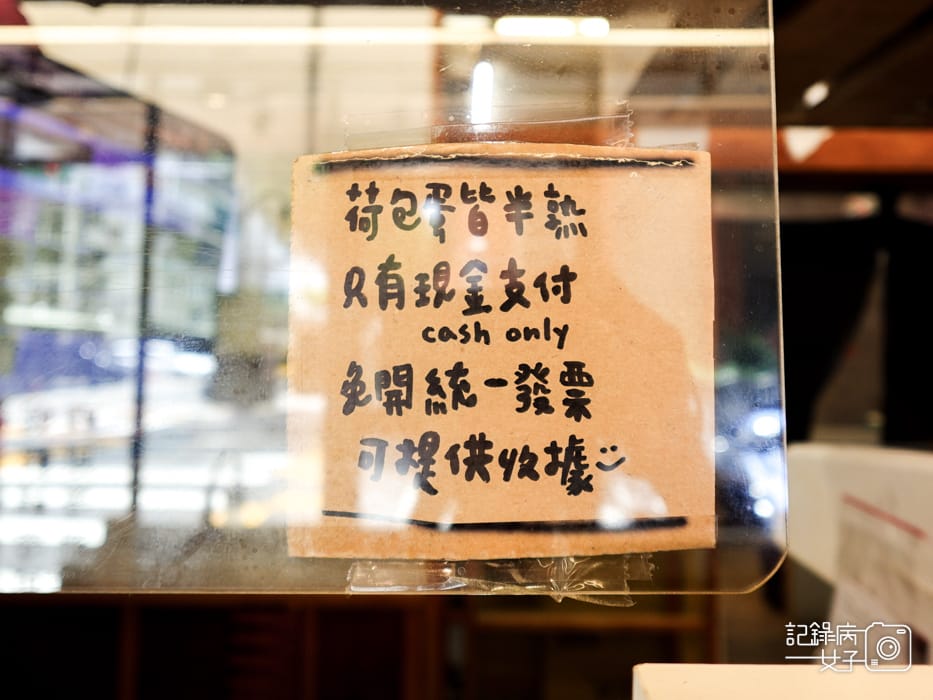 荷包蛋皆半熟
只有現金支付
cash only
免開統一發票
可提供收據
記錄病
女子